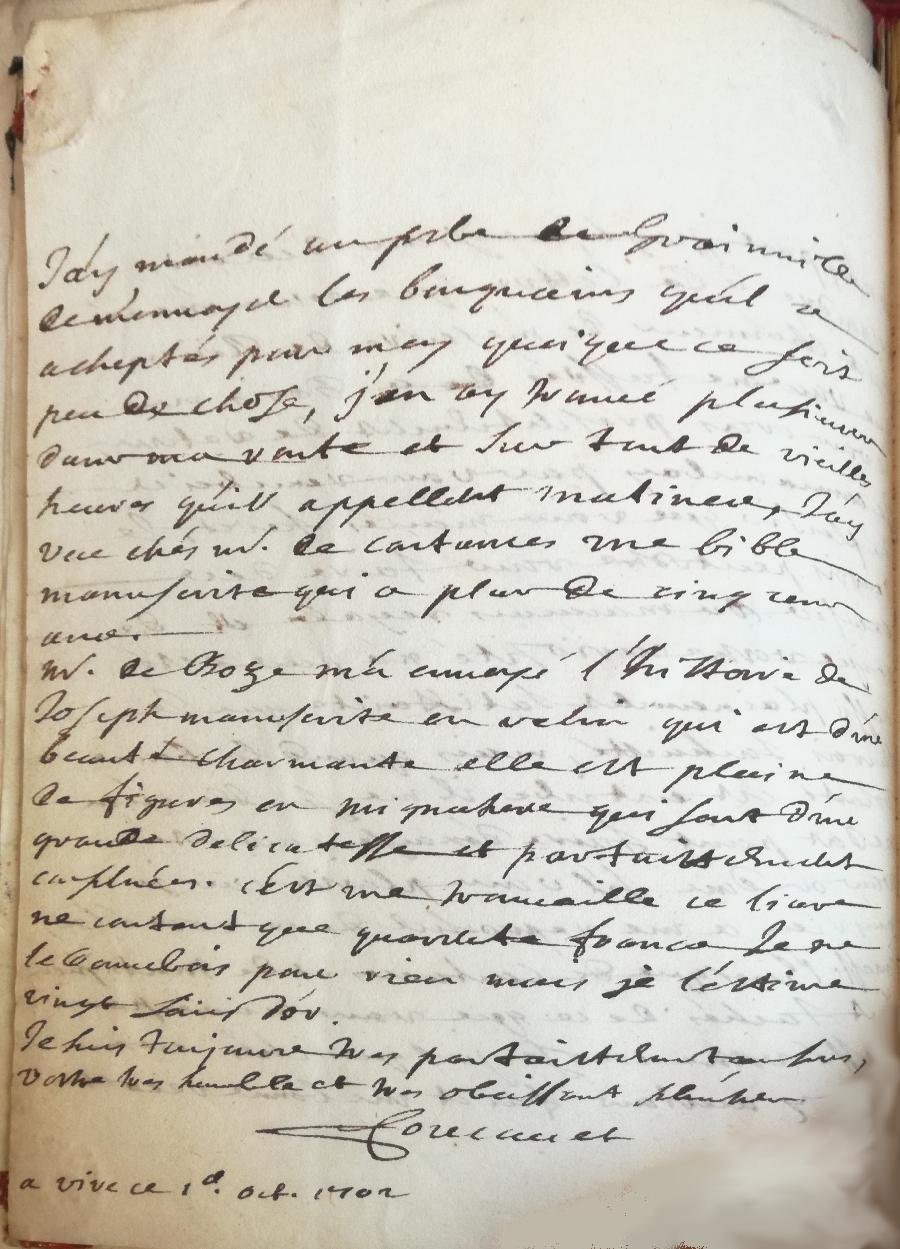 J'ay mandé au de Grainville
de m'envoyer les bouquains qu'il a
acheptés pour moy quoique ce soit
peu de chose, j'en ay trouvé plusieurs
dans ma vente et sur tout de vieilles
heures qu'ils appellent matines, J'ay
veu chés mr. de une bible
manuscrite qui a plus de cinq cens
ans.
mr. de Boze m'a envoyé l'histoire de
Joseph manuscrite en velin qui est d'une
beauté charmante elle est plaine
de figures en mignature qui sont d'une
grande delicatesse et parfaittement
c'est une trouvaille ce livre
ne coutant que quarante francs Je ne
le pour rien mais je l'estime
vingt Louis d'or.
Je suis toujours tres parfaittement
vostre tres humble et tres obeissant
Foucault
a 1d. oct. 1702